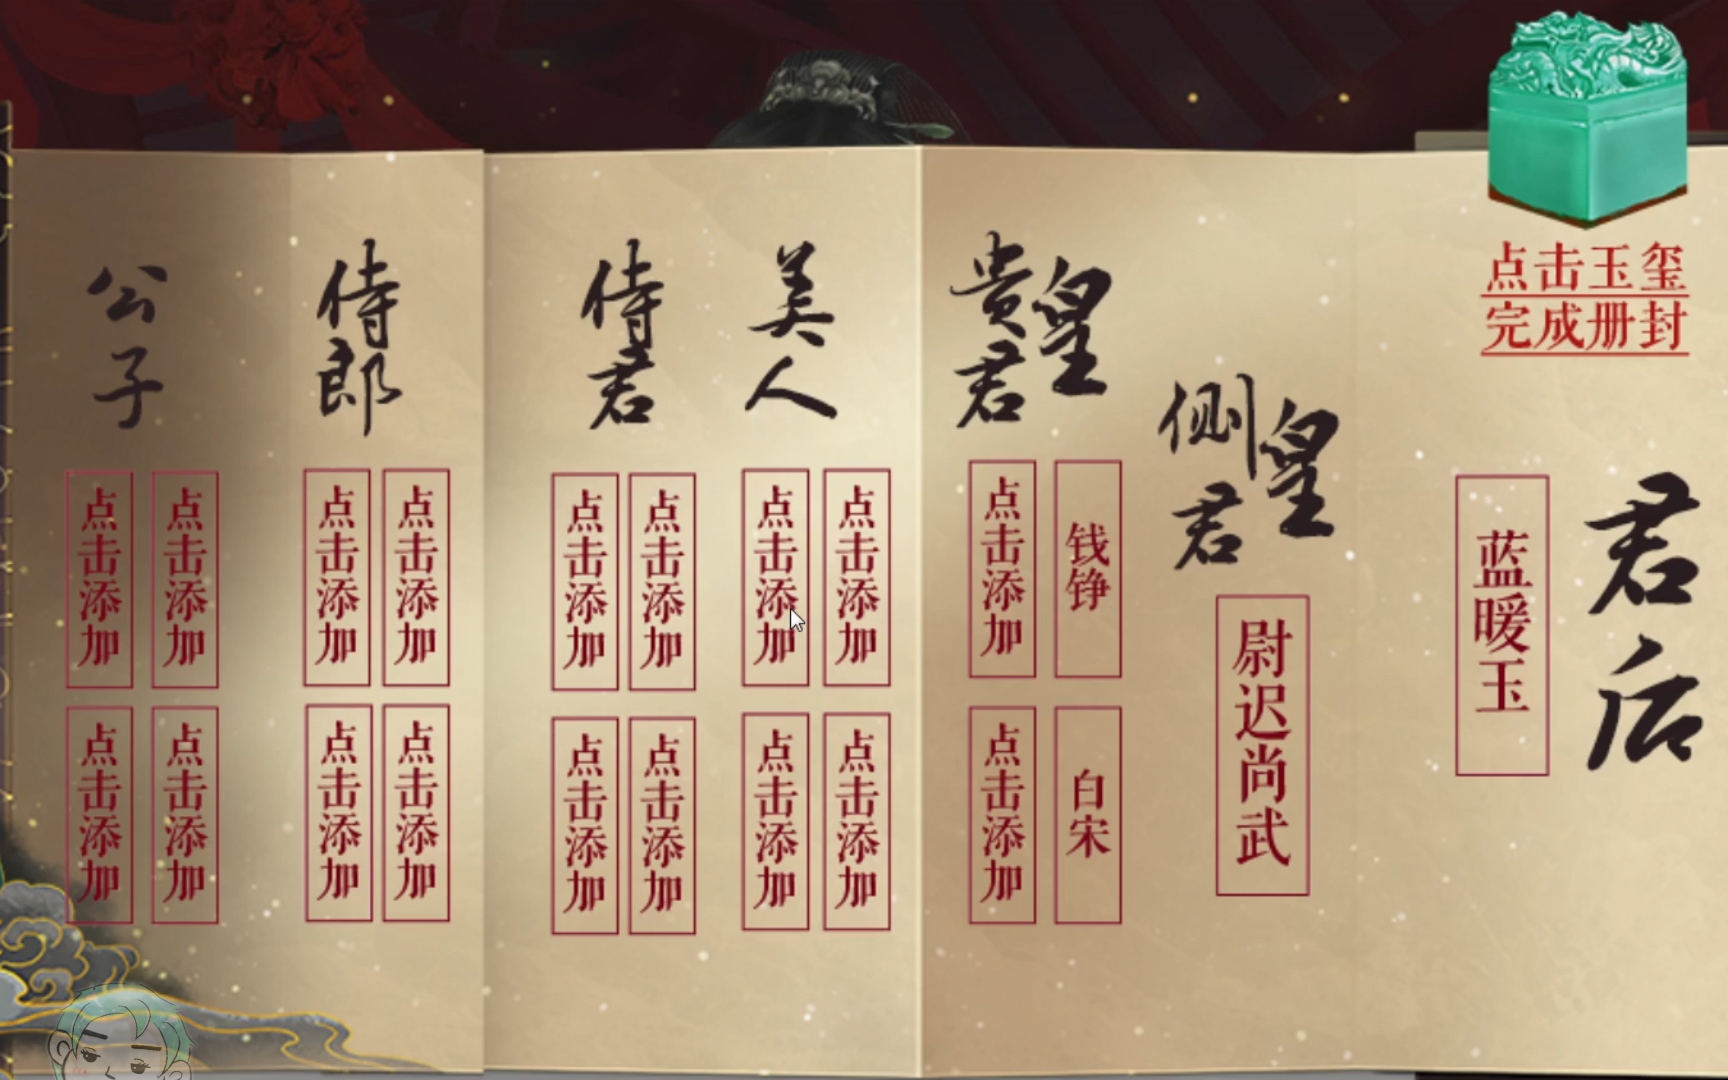 点击玉玺
完成册封
君后
蓝暖玉
皇
侧君
尉迟尚武
皇
贵君
钱铮
点击添加
白宋
点击添加
美人
点击添加
点击添加
点击添加
点击添加
侍君
点击添加
点击添加
点击添加
点击添加
侍郎
点击添加
点击添加
点击添加
点击添加
公子
点击添加
点击添加
点击添加
点击添加